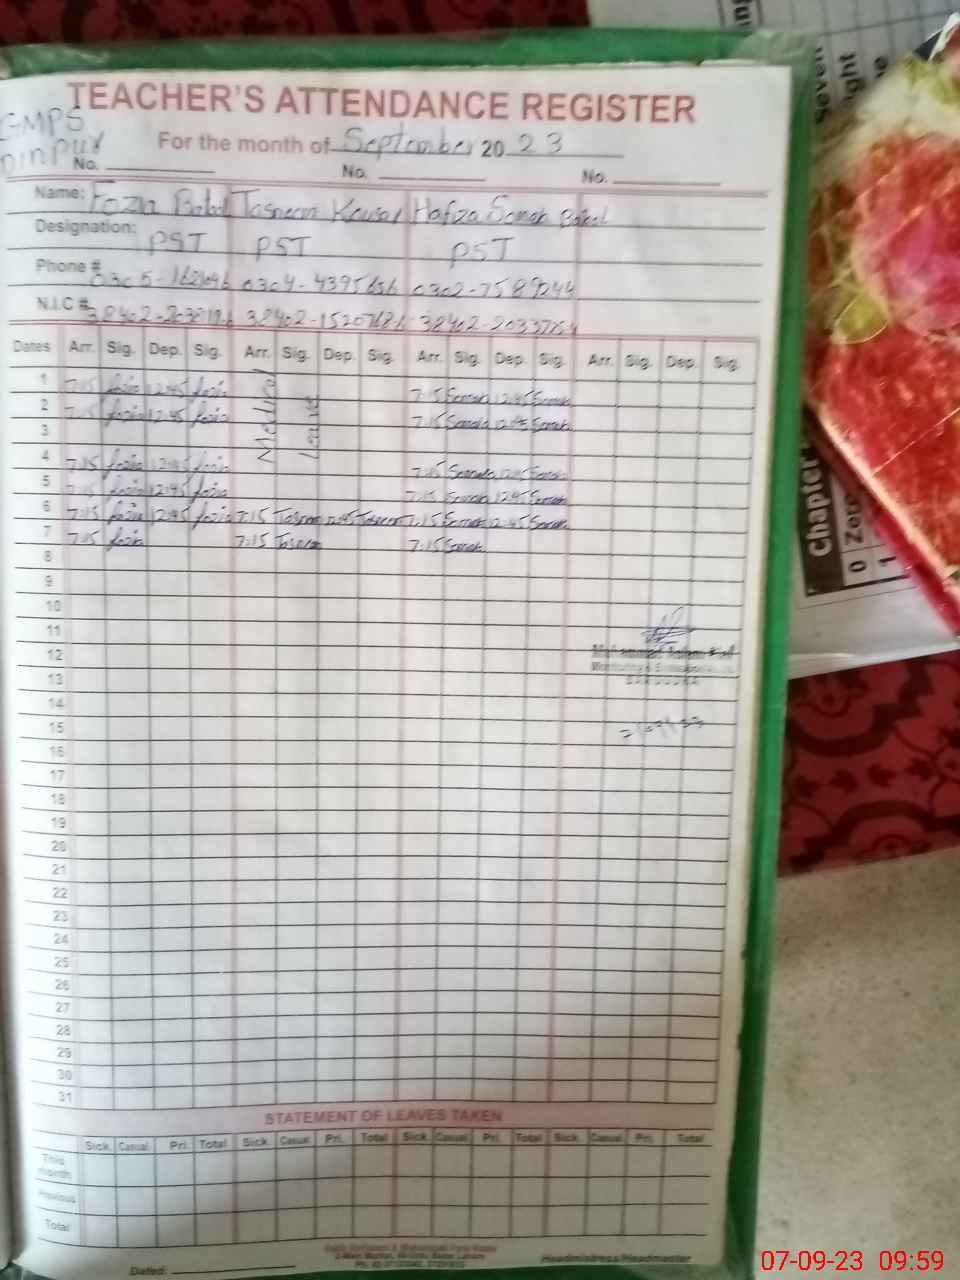 TEACHER'S ATTENDANCE REGISTER
GMPS
For the month of September 20 23
No. No. No.
Name: Fozia Tasneem Kausar Hafiza Samah
Designation: PST PST PST
Phone # 0304-4395656 0302-7589044
N.I.C #
Dates Arr. Sig. Dep. Sig. Arr. Sig. Dep. Sig. Arr. Sig. Dep. Sig. Arr. Sig. Dep. Sig.
Medical Leave
1 7:15 fozia 12:45 fozia 7:15 Samah 12:45 Samah
2 7:15 fozia 12:45 fozia 7:15 Samah 12:45 Samah
3
4 7:15 fozia 12:45 fozia 7:15 Samah 12:45 Samah
5 7:15 fozia 12:45 fozia 7:15 Samah 12:45 Samah
6 7:15 fozia 12:45 fozia 7:15 Tasneem 12:45 Tasneem 7:15 Samah 12:45 Samah
7 7:15 fozia 7:15 Tasneem 7:15 Samah
8
9
10
11
12
13
14
15
16
17
18
19
20
21
22
23
24
25
26
27
28
29
30
31
STATEMENT OF LEAVES TAKEN
Sick. Casual. Pri. Total Sick. Casual Pri. Total Sick. Casual. Pri. Total Sick. Casual. Pri. Total
This month
Previous
Total
Dated: Headmistress/Headmaster
Seven
Chapter
0 Zero
1
07-09-23 09:59